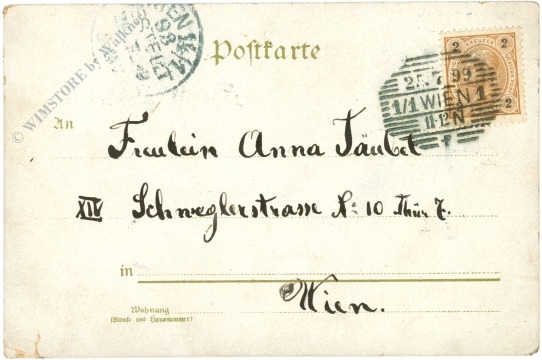 Postkarte
2 2
2 2
25.7.99
1/1 WIEN 1
11-12 N
F
WIEN 14/1
© WIMSTORE by Walkner
An
Freulein Anna Täubel
XIV Schweglerstrasse No 10 Thür 7.
in Wien.
Wohnung
(Straße und Hausnummer)